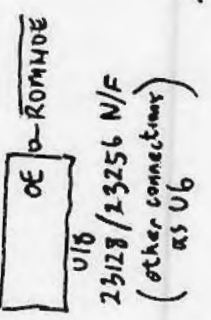 OE
U18
23128/23256 N/F
(other connections
as U6)